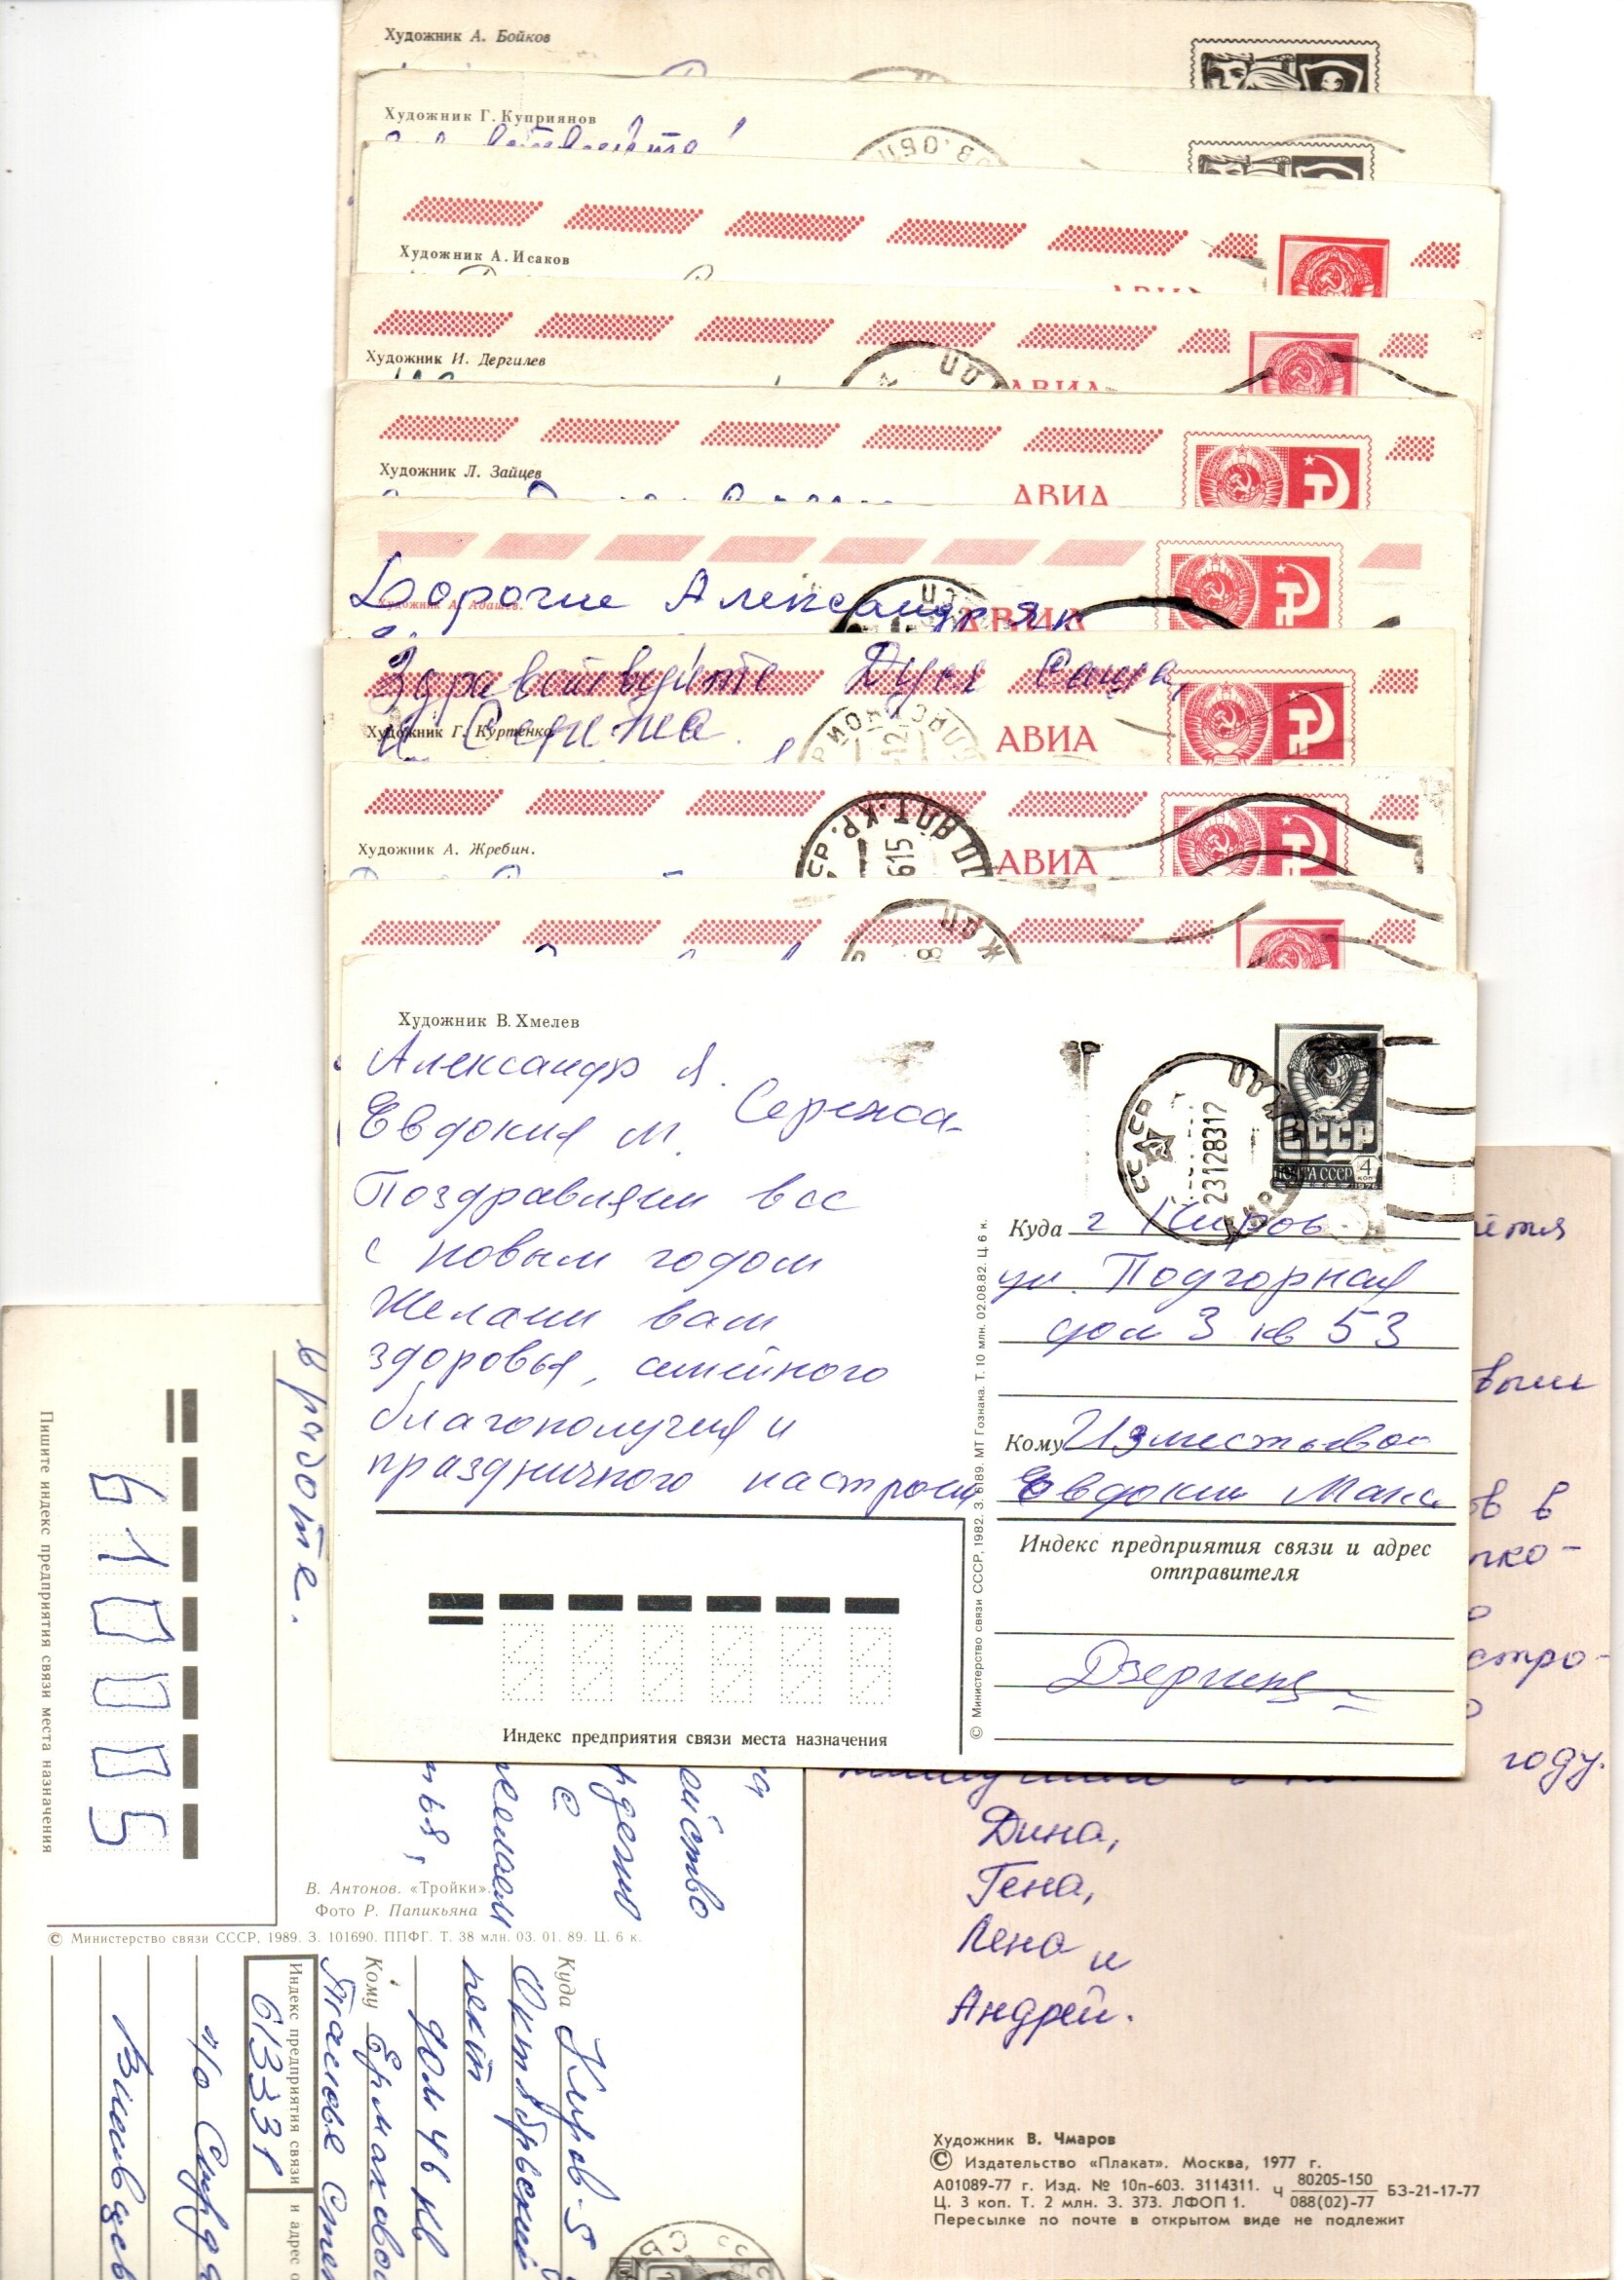 Художник А. Бойков
Художник Г. Куприянов
Художник А. Исаков
Художник И. Дергилев
АВИА
Художник Л. Зайцев
АВИА
Дорогие Александр Як
Художник А. Адашев.
АВИА
Здравствуйте Дуся Саша,
и Сережа.
Художник Г. Куртенко
АВИА
Художник А. Жребин.
АВИА
615
Художник В. Хмелев
Александр Я.
Евдокия М. Сережа.
Поздравляем всс
с новым годом
Желаем вам
здоровья, семейного
благополучия и
праздничного настроен
СССР
23128317
СССР
ПОЧТА СССР 4 коп
1976
Куда г Киров
ул. Подгорная
дом 3 кв 53
Кому Изместьевой
Евдокии Макс
Индекс предприятия связи и адрес
отправителя
Дзержинц
Индекс предприятия связи места назначения
© Министерство связи СССР, 1982. З. 6189. МТ Гознака. Т. 10 млн. 02.08.82. Ц. 6 к.
в работе.
Пишите индекс предприятия связи места назначения
610005
В. Антонов. «Тройки».
Фото Р. Папикьяна
© Министерство связи СССР, 1989. З. 101690. ППФГ. Т. 38 млн. 03. 01. 89. Ц. 6 к.
Куда Киров-5
Октябрьский
дом 46 кв
Кому Ермаковой
Индекс предприятия связи и адрес о
613331
году.
Дина,
Гена,
Лена и
Андрей.
Художник В. Чмаров
© Издательство «Плакат». Москва, 1977 г.
А01089-77 г. Изд. № 10п-603. 3114311. Ч 80205-150 / 088(02)-77 БЗ-21-17-77
Ц. 3 коп. Т. 2 млн. З. 373. ЛФОП 1.
Пересылке по почте в открытом виде не подлежит